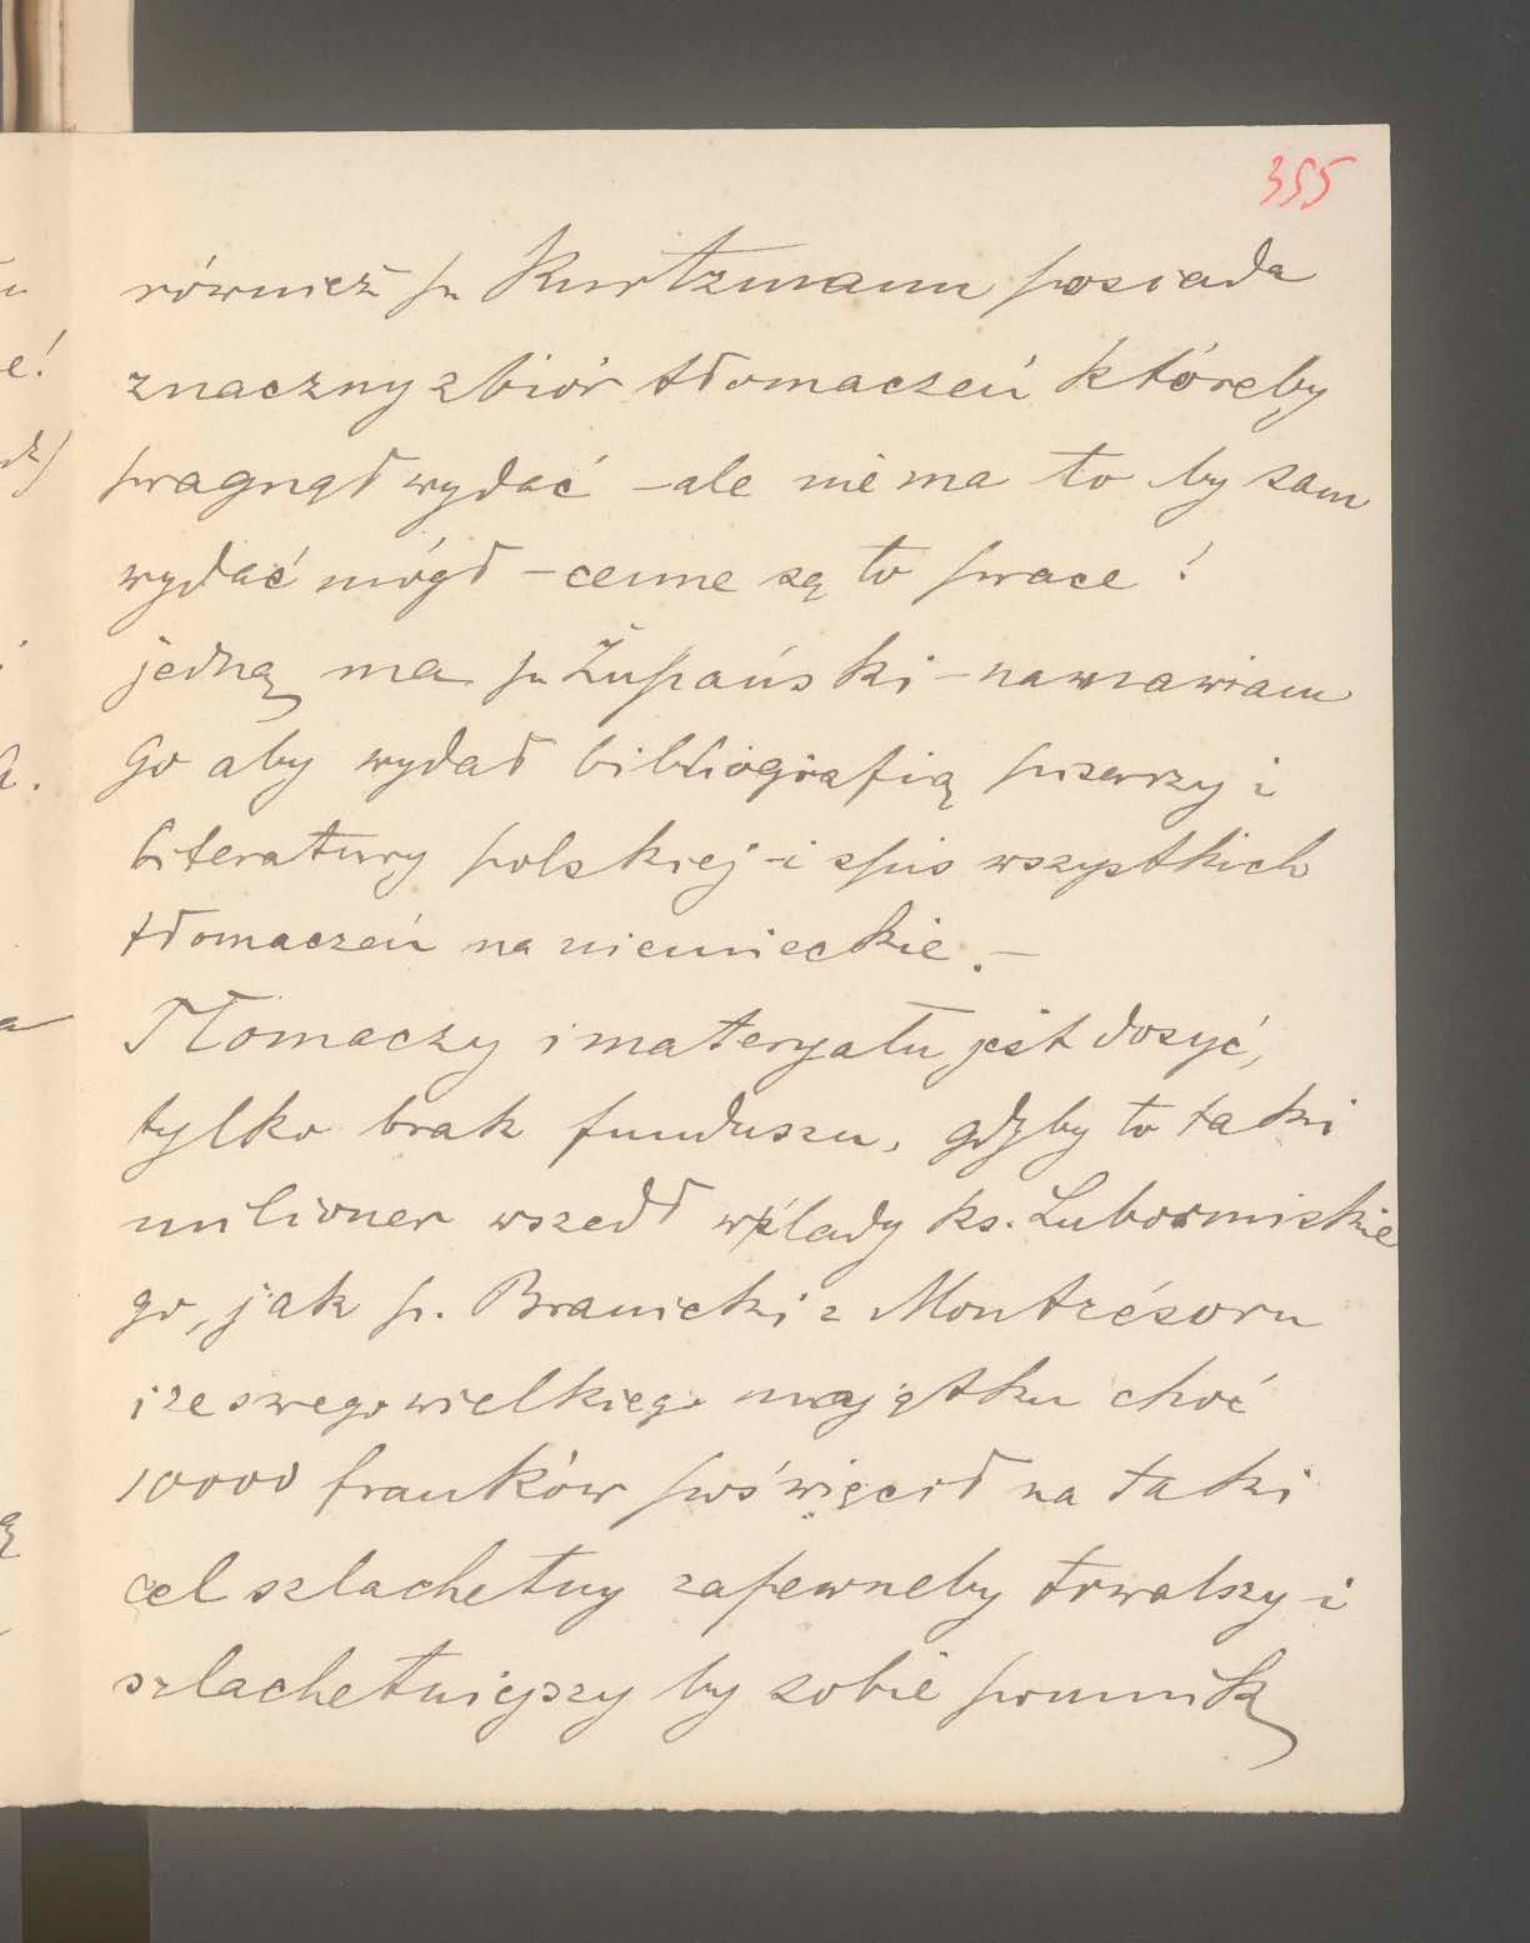 355
również p. Kurtzmann posiada
znaczny zbiór tłomaczeń któreby
pragnął wydać – ale nie ma to by sam
wydać mógł – cenne są to prace!
jedną ma p. Żupański – namawiam
go aby wydał bibliografią pisarzy i
literatury polskiej – i spis wszystkich
tłomaczeń na niemieckie. –
Tłomaczy i materyału jest dosyć,
tylko brak funduszu, gdyby to taki
milioner wszedł w ślady ks. Lubormiskie
go, jak p. Branicki z Montrésoru
i ze swego wielkiego majątku choć
10000 franków poświęcił na taki
cel szlachetny zapewneby trwalszy i
szlachetniejszy by sobie pomnik